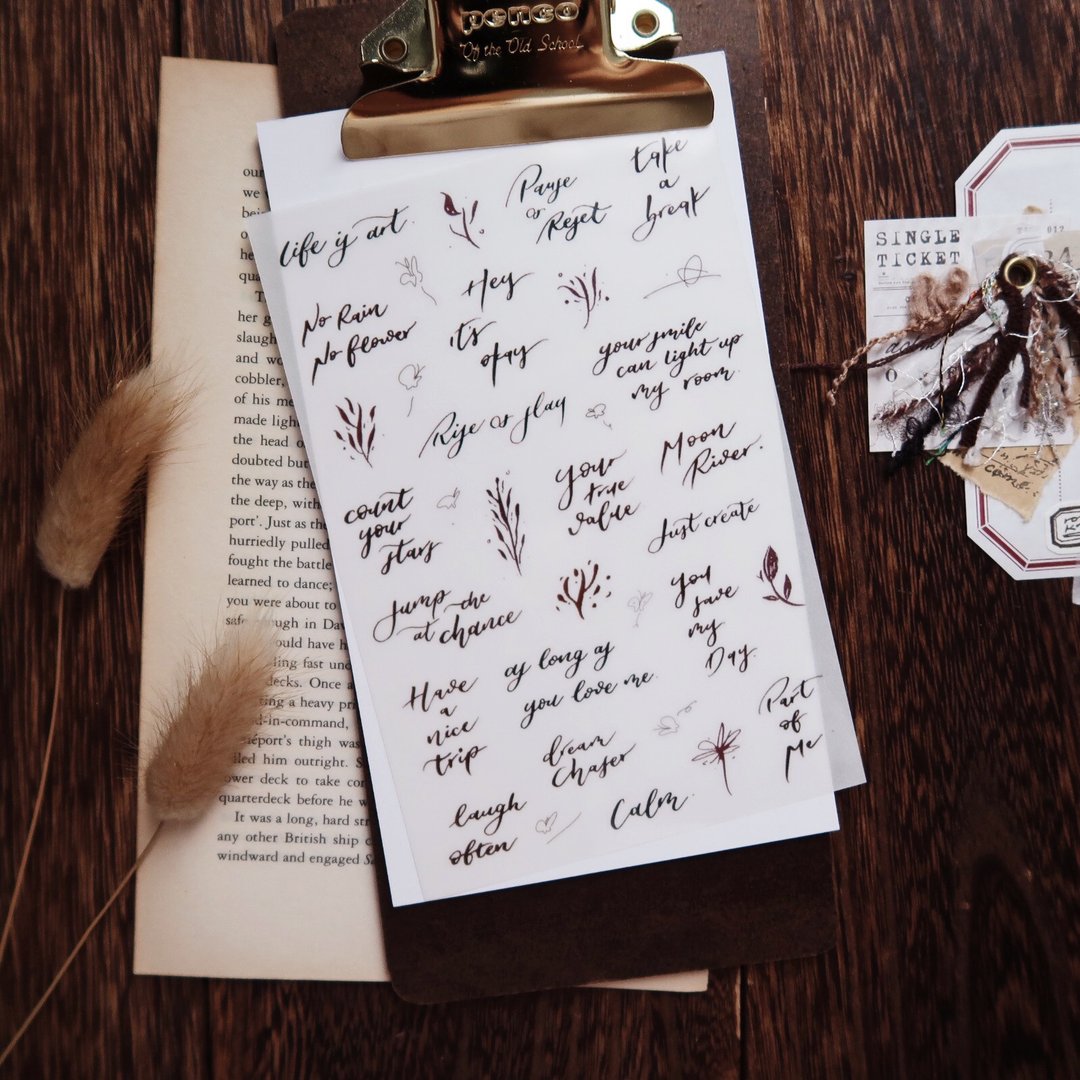 penco
Of the Old School
Life is art.
Pause
or
Reset
take
a
break
No Rain
No flower
Hey
it's
okay
your smile
can light up
my room.
Rise or slay
Moon
River.
count
your
stars
your
true
value
Just create
Jump the
at chance
you
save
my
Day.
Have
a
nice
trip
as long as
you love me.
Part
of
Me
dream
Chaser
laugh
often
Calm.
our
we
bei
he
qua
her g
slaugh
and wo
cobbler,
of his me
made ligh
the head o
doubted but
the way as the
the deep, with
port'. Just as the
hurriedly pulled
fought the battle
learned to dance;
you were about to
safe enough in Dav
ould have h
ling fast und
decks. Once a
ting a heavy pri
d-in-command,
éport's thigh was
lled him outright. S
ower deck to take con
quarterdeck before he w
It was a long, hard str
any other British ship e
windward and engaged Sa
SINGLE
TICKET
012